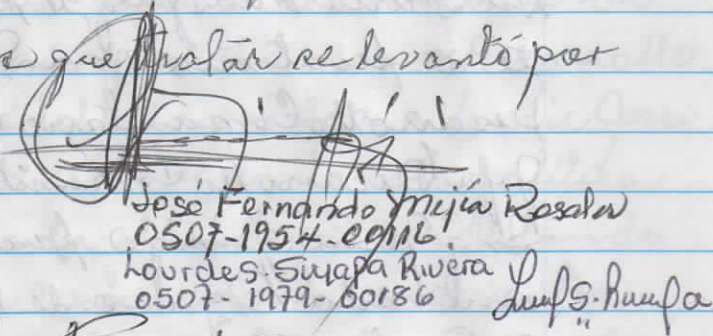 que tratar se levantó por
José Fernando Mejía Rosales
0507-1954-00116
Lourdes Suyapa Rivera
0507-1979-00186